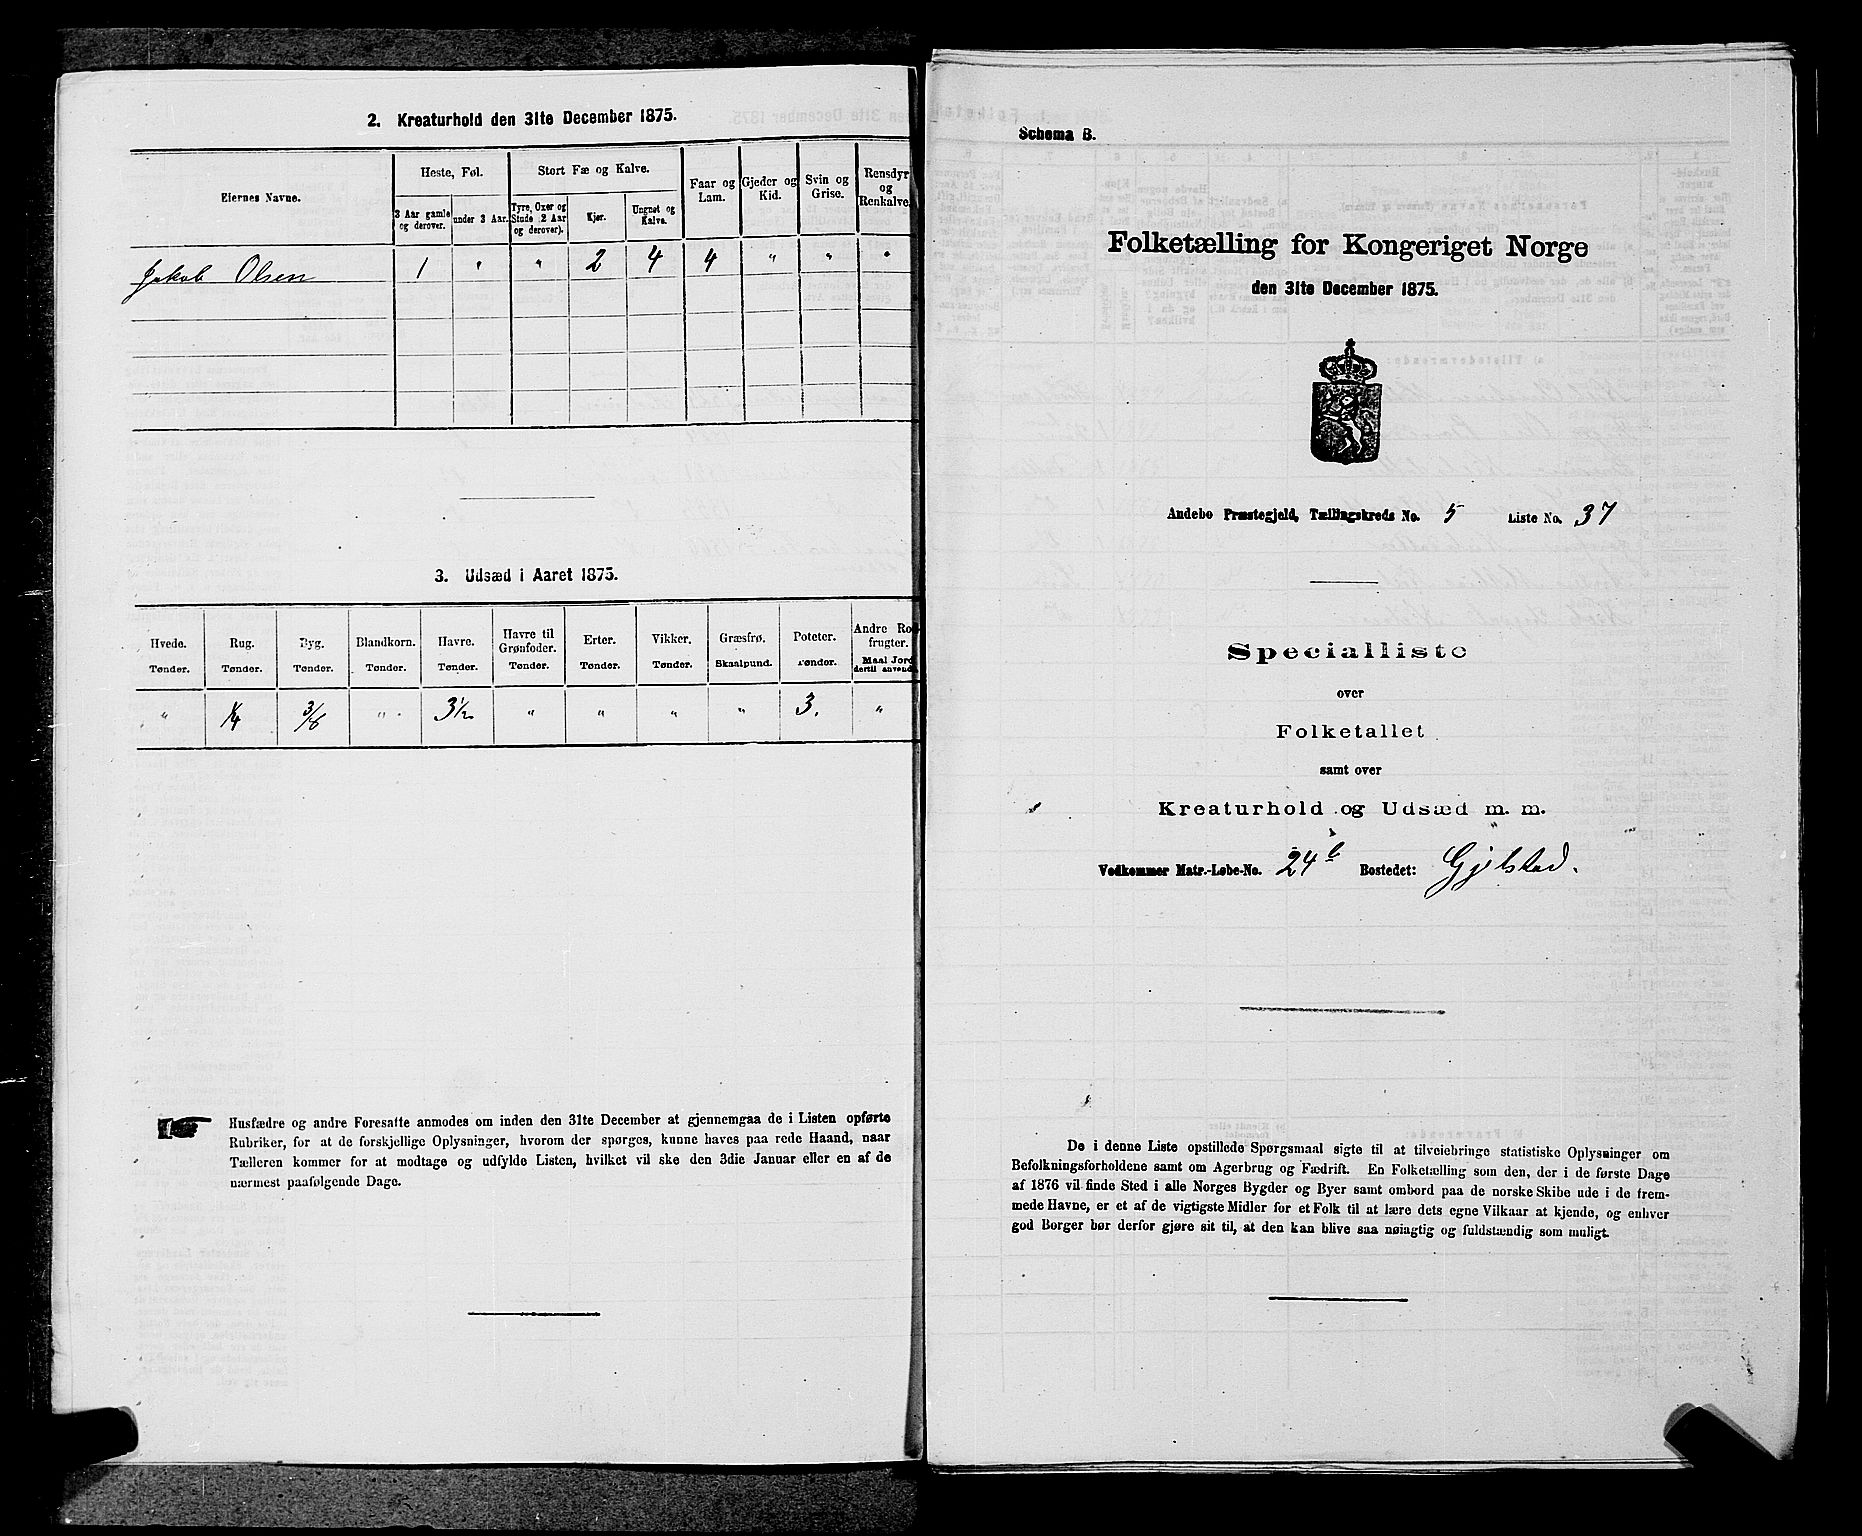 2. Kreaturhold den 31te December 1875.
Eiernes Navne.
Heste, Føl.
Stort Fæ og Kalve.
Faar og Lam.
Gjeder og Kid.
Svin og Grise.
Rensdyr og Renkalve.
3 Aar gamle og derover.
under 3 Aar.
Tyre, Oxer og Stude 2 Aar og derover).
Kjør.
Ungnøt og Kalve.
Jakob Olsen 1 " " 2 4 4 " " "
3. Udsæd i Aaret 1875.
Hvede. Rug. Byg. Blandkorn. Havre. Havre til Grønfoder. Erter. Vikker. Græsfrø. Poteter. Andre Rodfrugter.
Tønder. Tønder. Tønder. Tønder. Tønder. Tønder. Tønder. Tønder. Skaalpund. Tønder. Maal Jord dertil anvendt.
" 1/4 3/8 " 3 1/2 " " " " 3. "
Husfædre og andre Foresatte anmodes om inden den 31te December at gjennemgaa de i Listen opførte
Rubriker, for at de forskjellige Oplysninger, hvorom der spørges, kunne haves paa rede Haand, naar
Tælleren kommer for at modtage og udfylde Listen, hvilket vil ske den 3die Januar eller en af de
nærmest paafølgende Dage.
Schema B.
Folketælling for Kongeriget Norge
den 31te December 1875.
Andebo Præstegjeld, Tællingskreds No. 5 Liste No. 37
Specialliste
over
Folketallet
samt over
Kreaturhold og Udsæd m. m.
Vedkommer Matr.-Løbe-No. 24 b Bostedet: Gjelstad.
De i denne Liste opstillede Spørgsmaal sigte til at tilveiebringe statistiske Oplysninger om
Befolkningsforholdene samt om Agerbrug og Fædrift. En Folketælling som den, der i de første Dage
af 1876 vil finde Sted i alle Norges Bygder og Byer samt ombord paa de norske Skibe ude i de frem-
mede Havne, er et af de vigtigste Midler for et Folk til at lære dets egne Vilkaar at kjende, og enhver
god Borger bør derfor gjøre sit til, at den kan blive saa nøiagtig og fuldstændig som muligt.